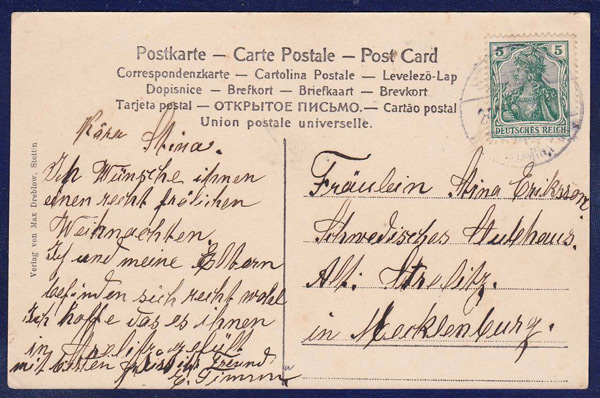 Postkarte — Carte Postale — Post Card
Correspondenzkarte — Cartolina Postale — Levelezö-Lap
Dopisnice — Brefkort — Briefkaart — Brevkort
Tarjeta postal — ОТКРЫТОЕ ПИСЬМО. — Cartão postal
Union postale universelle.
5 5
DEUTSCHES REICH
Verlag von Max Dreblow, Stettin
Kära Stina.
Ich Wünsche ihnen
einen recht frölichen
Weihnachten.
Ich und meine Eltern
befinden sich recht wohl
Ich hoffe das es ihnen
in Strelitz gefült
mit besten Freund
E. Timm
Fräulein Stina Eriksson
Schwedisches
Alt: Strelitz.
in Mecklenburg.